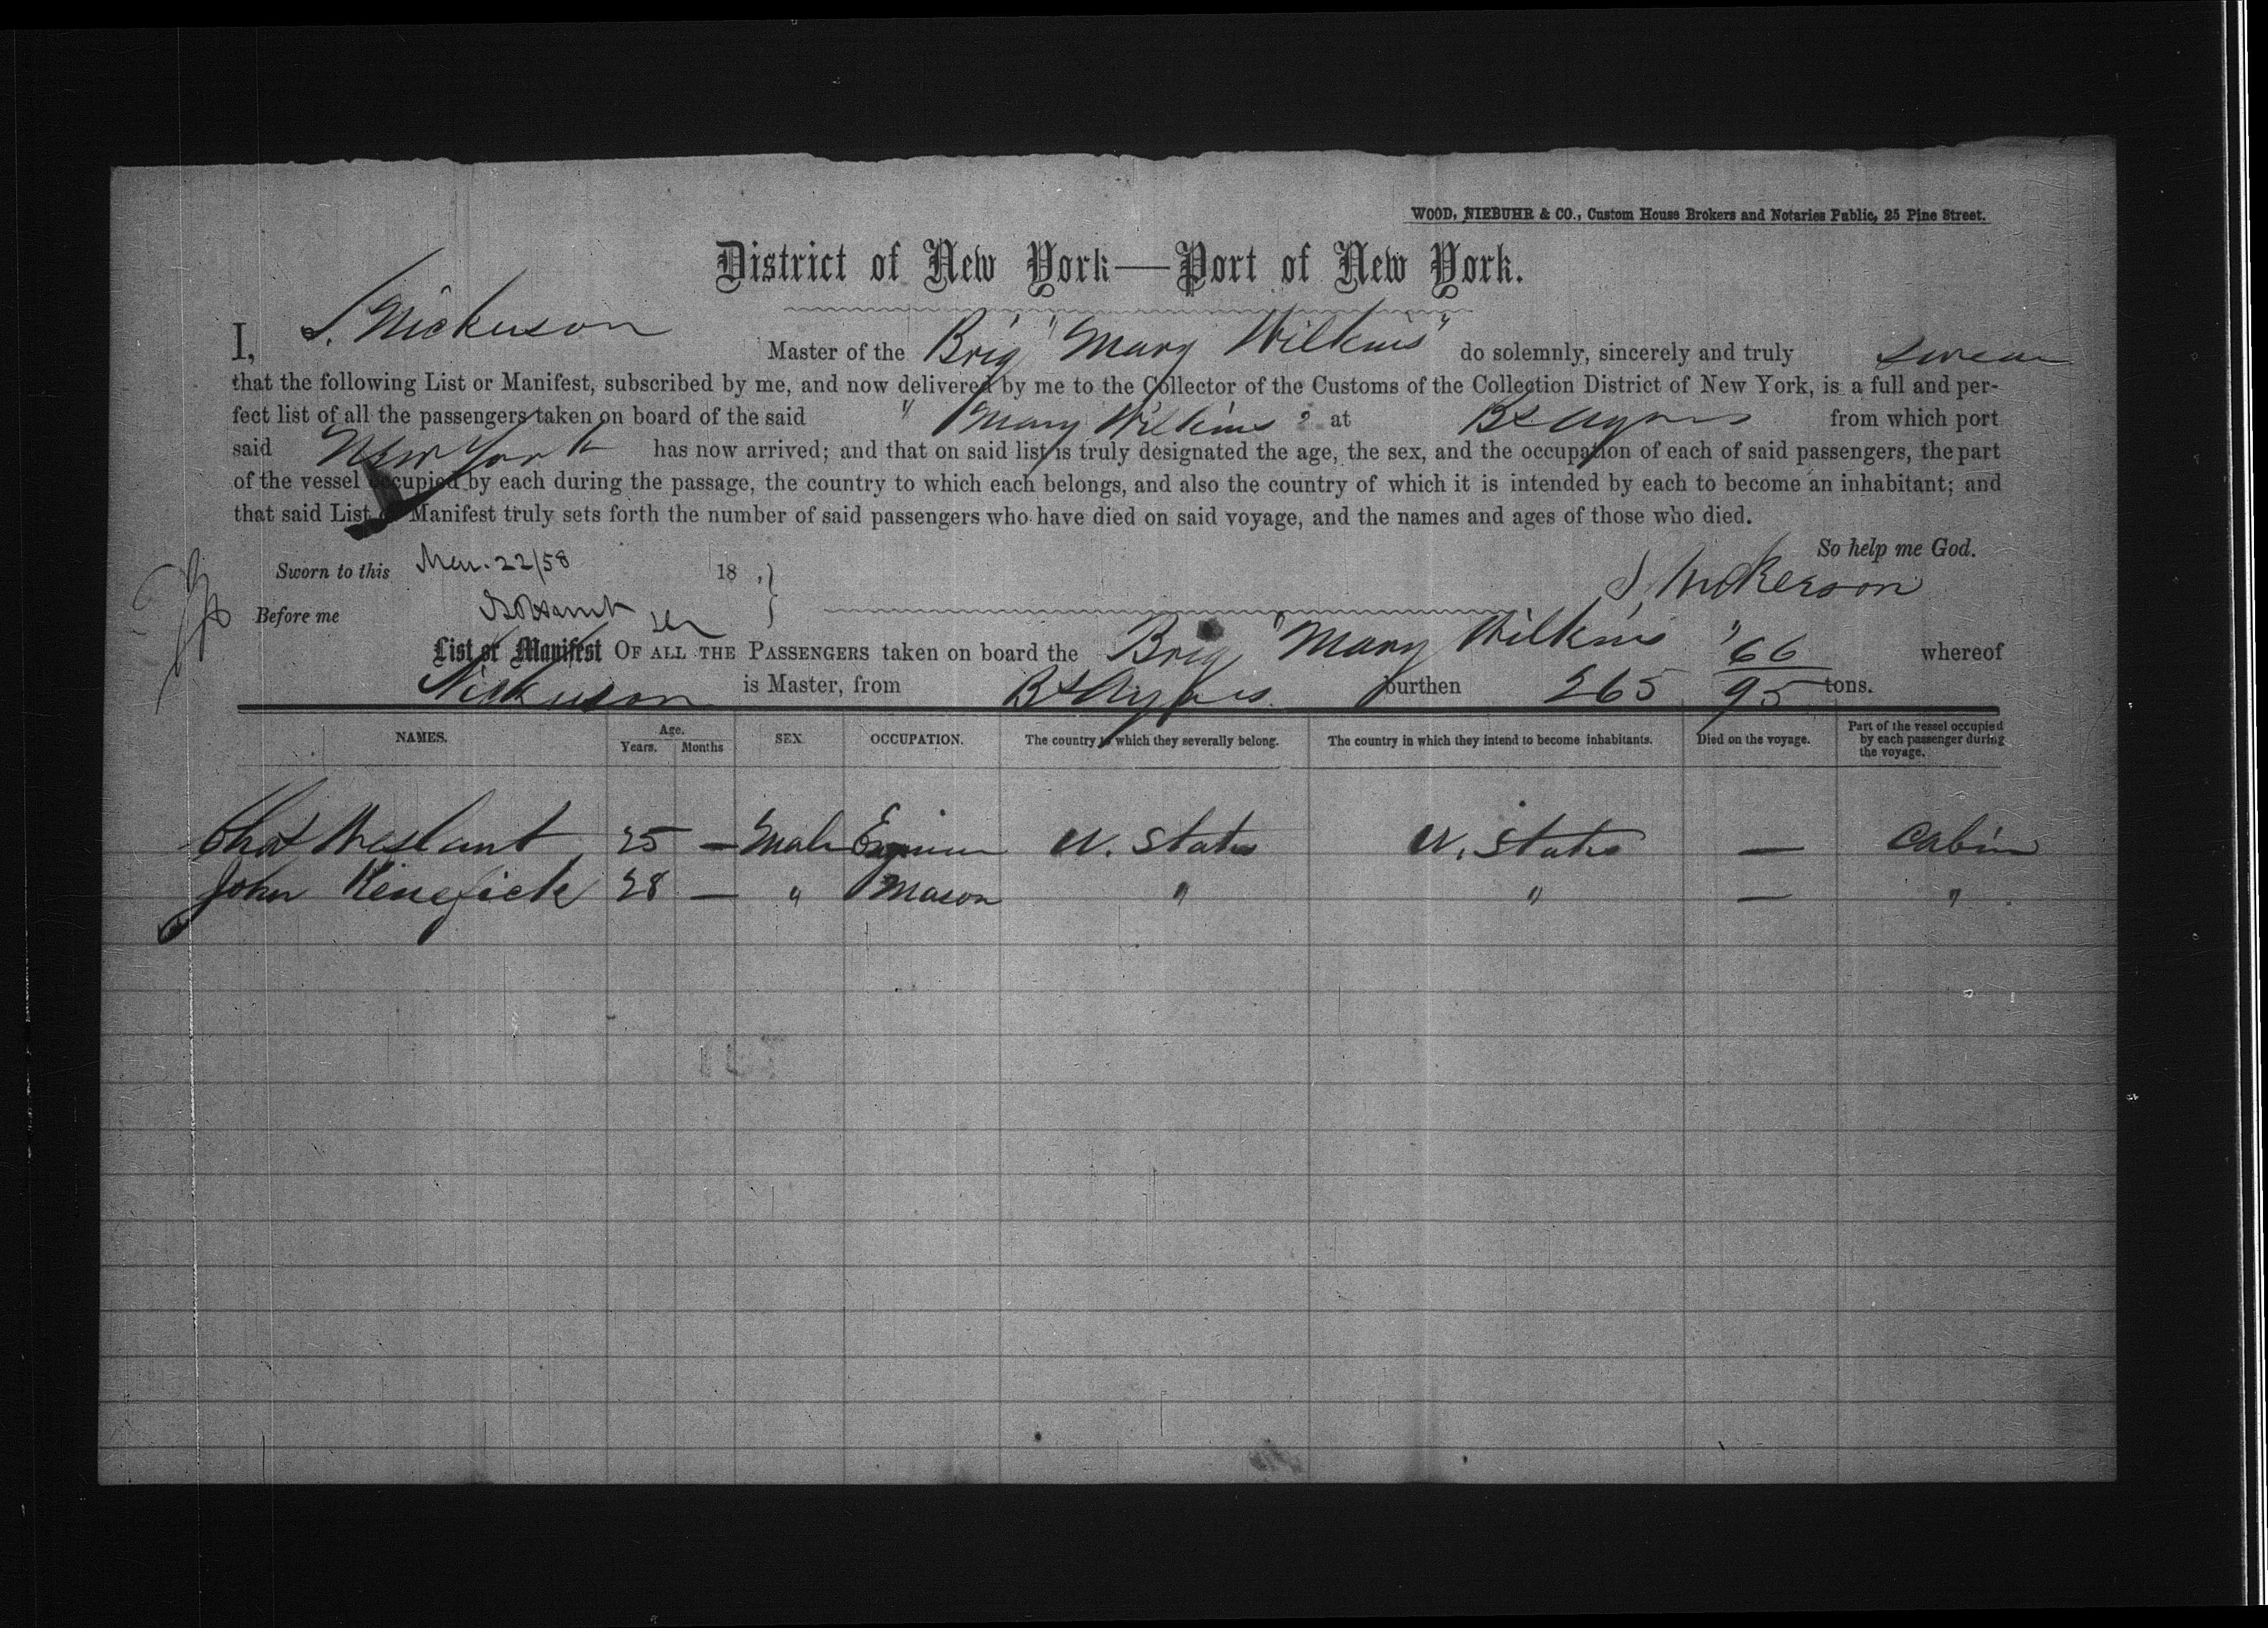 WOOD, NIEBUHR & CO., Custom House Brokers and Notaries Public, 25 Pine Street.
District of New York—Port of New York.
I, S. Nickerson Master of the Brig "Mary Wilkins" do solemnly, sincerely and truly swear
that the following List or Manifest, subscribed by me, and now delivered by me to the Collector of the Customs of the Collection District of New York, is a full and per-
fect list of all the passengers taken on board of the said "Mary Wilkins" at Bs Ayres from which port
said New York has now arrived; and that on said list is truly designated the age, the sex, and the occupation of each of said passengers, the part
of the vessel occupied by each during the passage, the country to which each belongs, and also the country of which it is intended by each to become an inhabitant; and
that said List or Manifest truly sets forth the number of said passengers who have died on said voyage, and the names and ages of those who died.
So help me God.
Sworn to this 22/58 18 , S Nickerson
Before me
List or Manifest OF ALL THE PASSENGERS taken on board the Brig "Mary Wilkins" whereof
Nickerson is Master, from Bs Ayres burthen 265 66/95 tons.
NAMES. Age. Years. Months SEX. OCCUPATION. The country to which they severally belong. The country in which they intend to become inhabitants. Died on the voyage. Part of the vessel occupied by each passenger during the voyage.
Chas 25 — Male Engineer U. States U. States — Cabin
John Kenefick 28 — " Mason " " — "